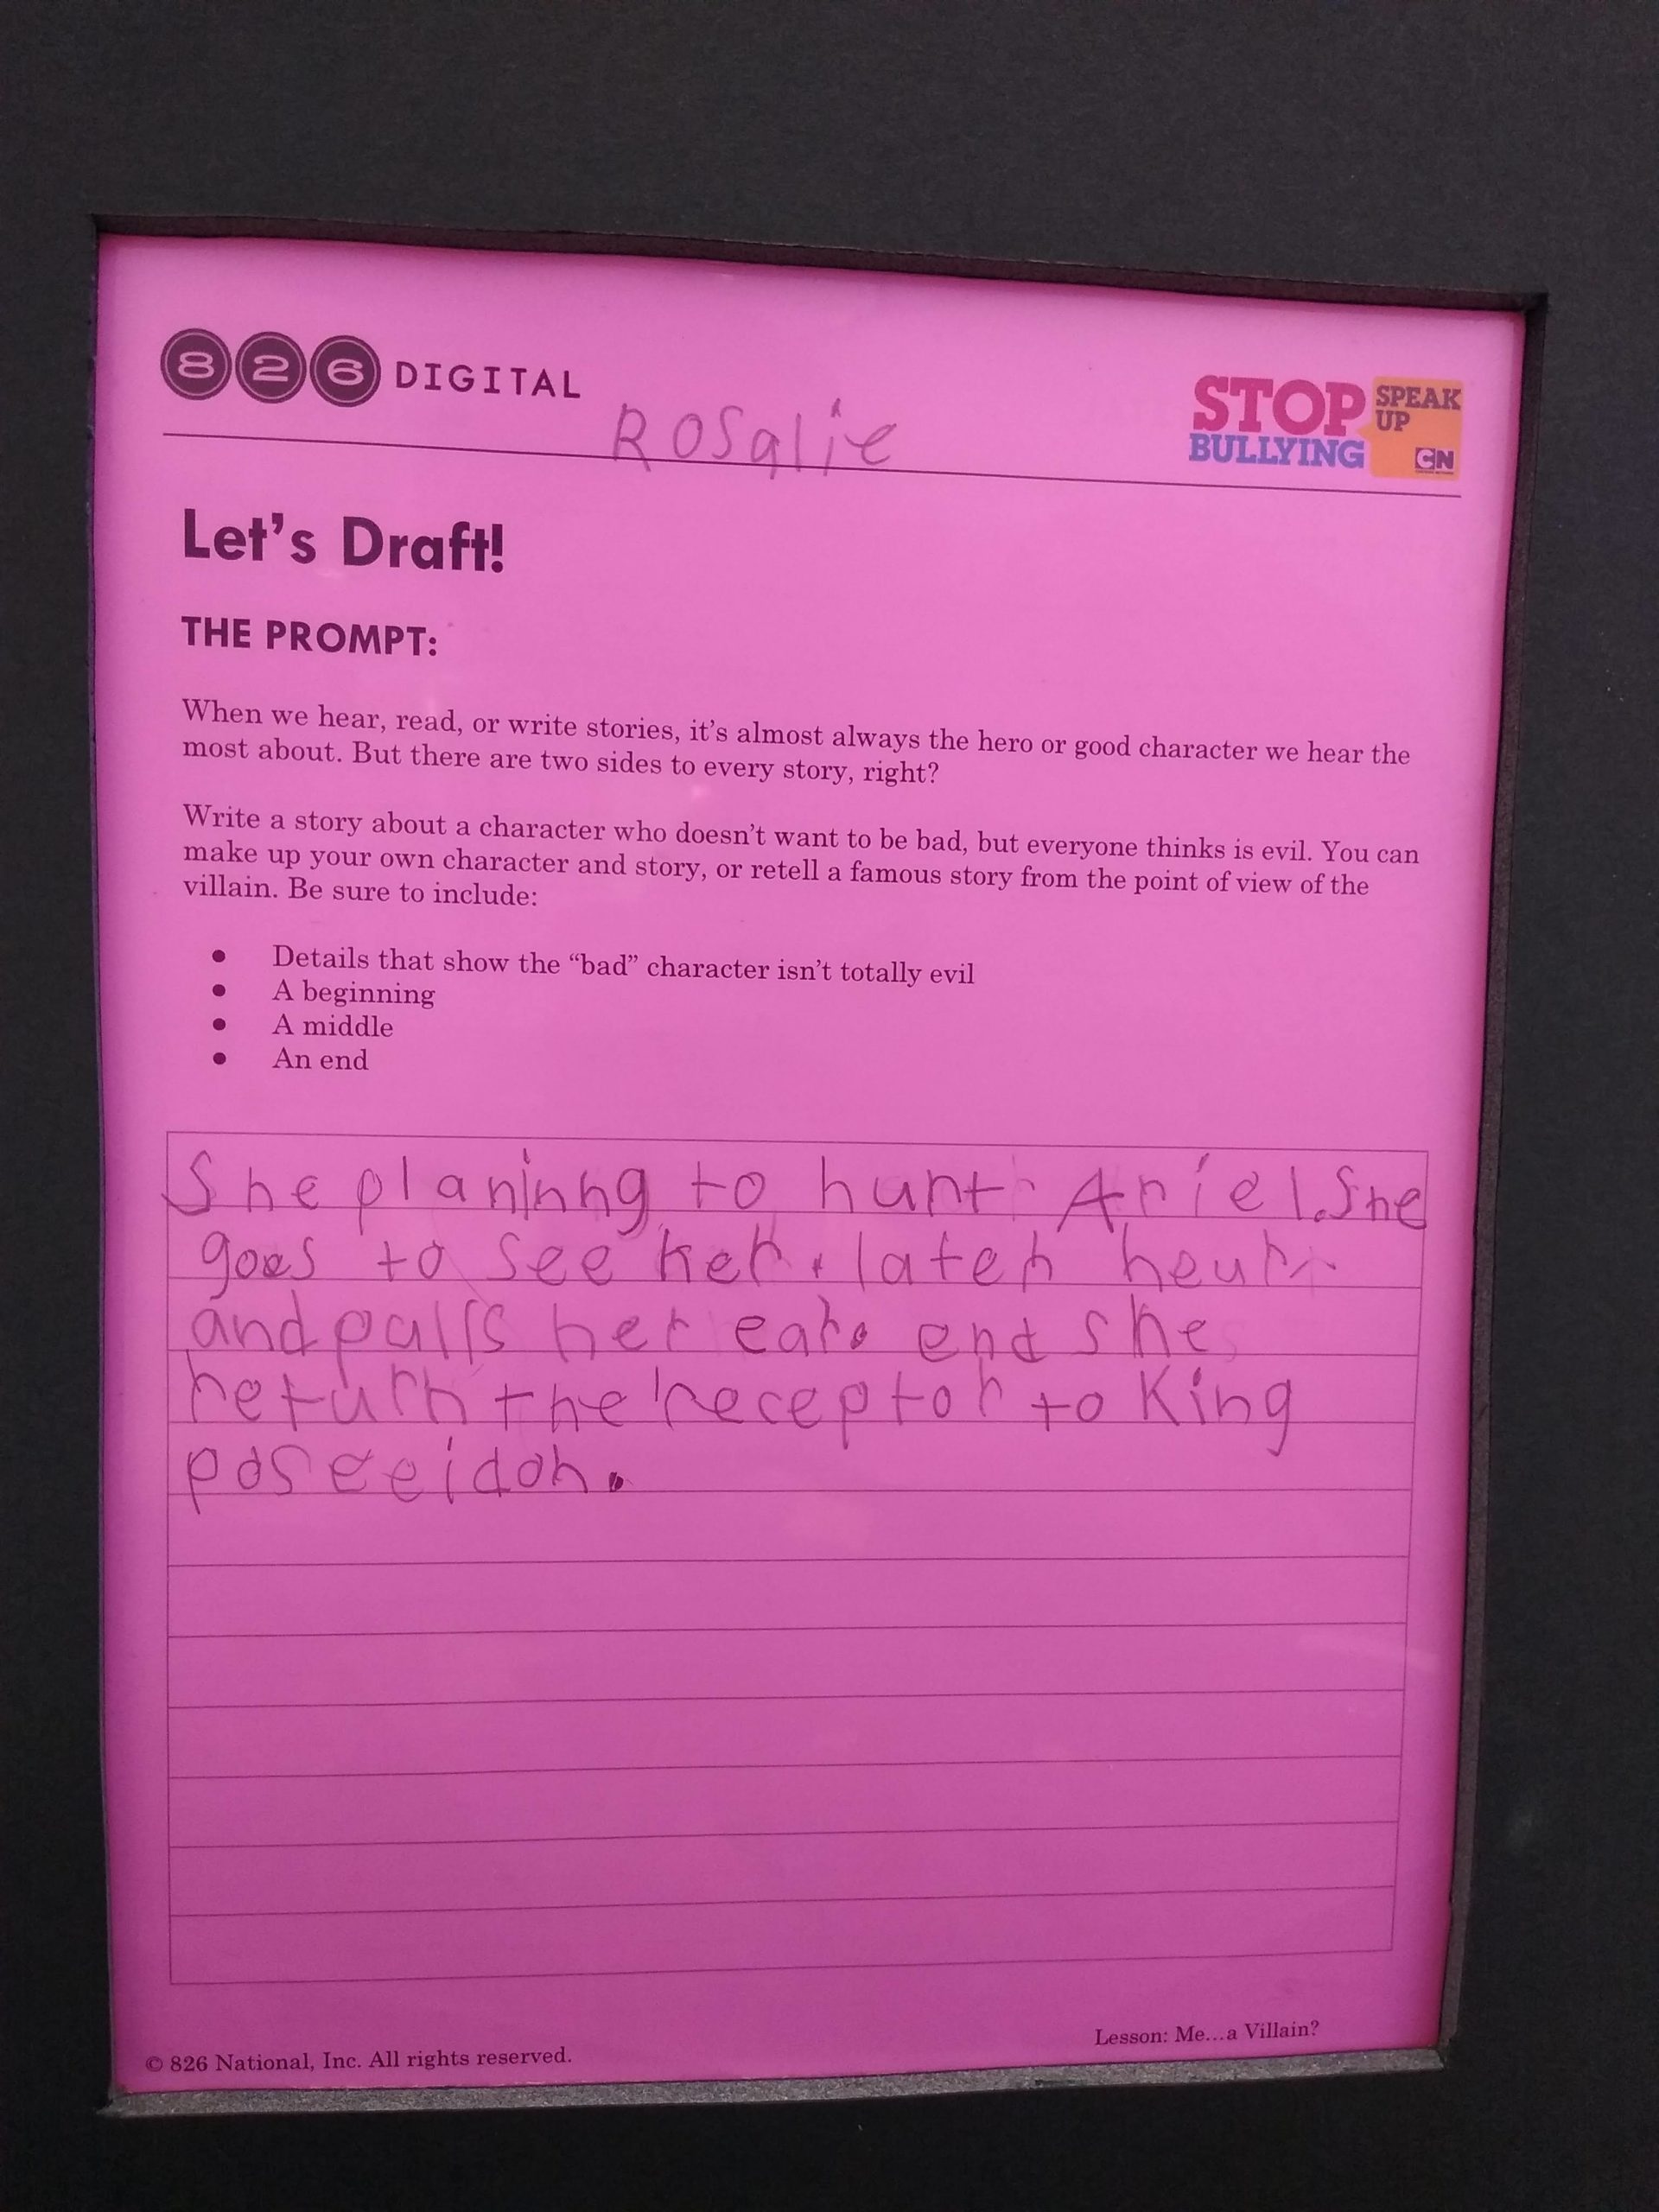 826 DIGITAL
Rosalie
STOP SPEAK UP
BULLYING CN
Let's Draft!
THE PROMPT:
When we hear, read, or write stories, it's almost always the hero or good character we hear the
most about. But there are two sides to every story, right?
Write a story about a character who doesn't want to be bad, but everyone thinks is evil. You can
make up your own character and story, or retell a famous story from the point of view of the
villain. Be sure to include:
• Details that show the “bad” character isn't totally evil
• A beginning
• A middle
• An end
She planinng to hunt Ariel. She
goes to see her. later
and pulls her ear. end she
return the receptor to King
poseeidon.
© 826 National, Inc. All rights reserved.
Lesson: Me...a Villain?